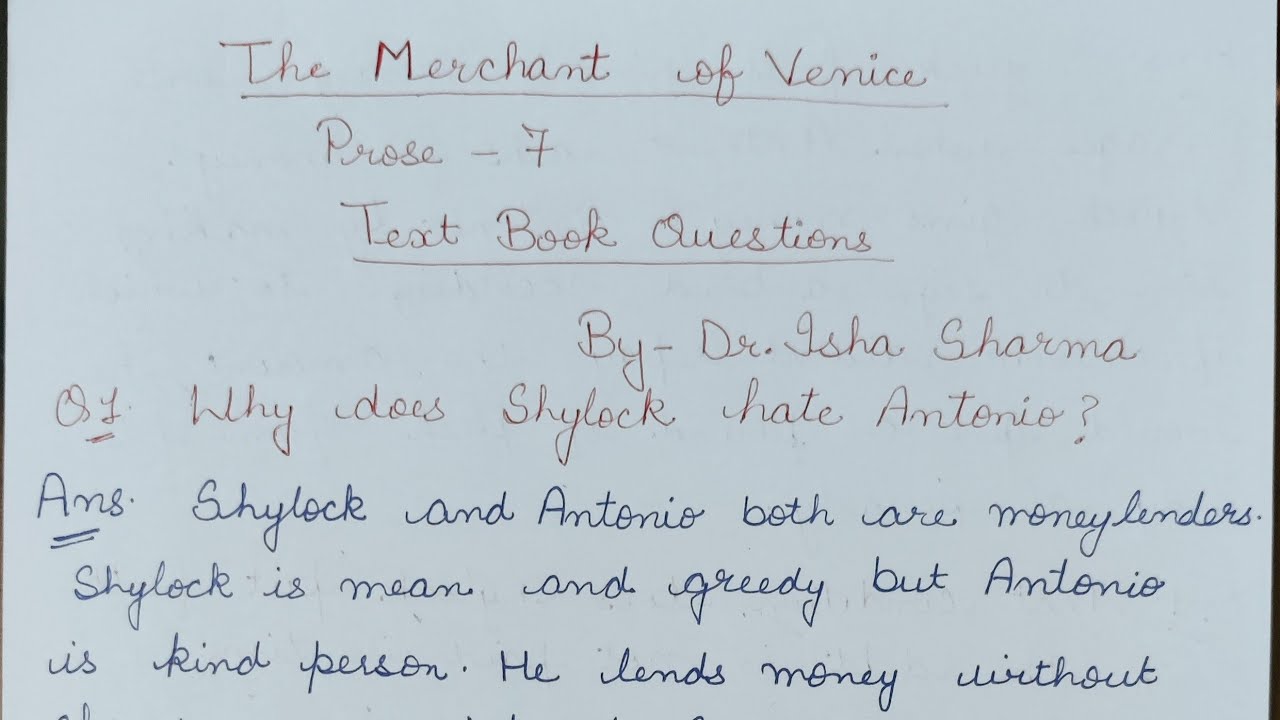 The Merchant of Venice
Prose - 7
Text Book Questions
By - Dr. Isha Sharma
Q1. Why does Shylock hate Antonio?
Ans. Shylock and Antonio both are moneylenders.
Shylock is mean and greedy but Antonio
is kind person. He lends money without